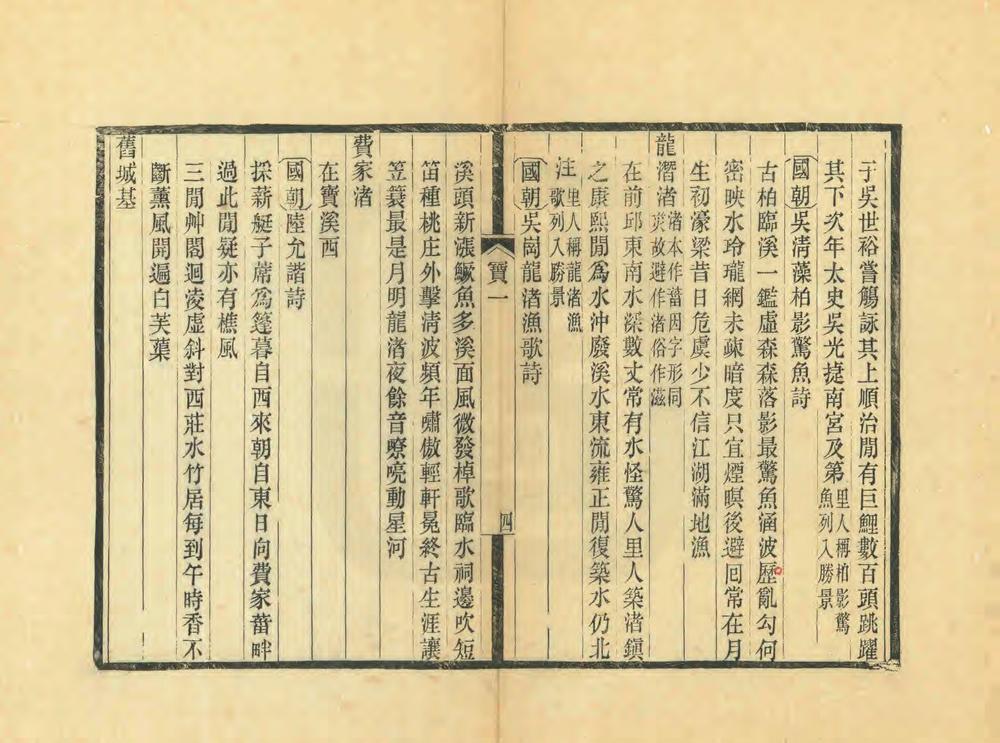 于吳世裕嘗觴詠其上順治閒有巨鯉數百頭跳躍
其下次年太史吳光捷南宮及第里人稱柏影驚
魚列入勝景
國朝吳清藻柏影驚魚詩
古柏臨溪一鑑虛森森落影最驚魚涵波歷亂勾何
密映水玲瓏網未疎暗度只宜煙暝後避囘常在月
生初濠梁昔日危虞少不信江湖滿地漁
龍潛渚渚本作蕾因字形同
災故避作渚俗作滋
在前邱東南水深數丈常有水怪驚人里人築渚鎭
之康熙閒爲水沖廢溪水東流雍正閒復築水仍北
注里人稱龍渚漁
歌列入勝景
國朝吳崗龍渚漁歌詩
寶一
四
溪頭新漲鱖魚多溪面風微發棹歌臨水祠邊吹短
笛種桃庄外擊清波頻年嘯傲輕軒冕終古生涯讓
笠蓑最是月明龍渚夜餘音嘹喨動星河
費家渚
在寶溪西
國朝陸允諸詩
採薪艇子蓆爲篷暮自西來朝自東日向費家蕾畔
過此閒疑亦有樵風
三閒艸閣迴淩虛斜對西莊水竹居每到午時香不
斷薰風開遍白芙蕖
舊城基